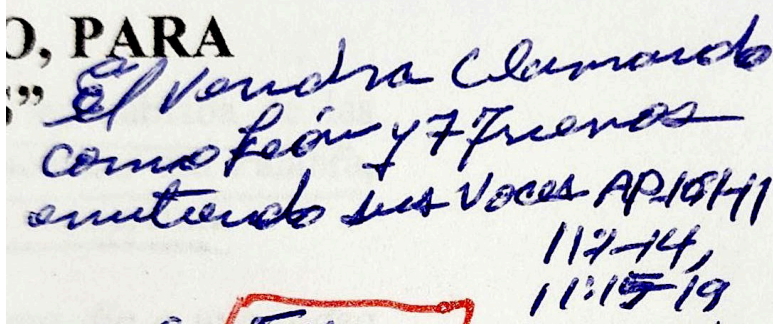 O, PARA
S” El Vendra Clamando
como León y 7 Truenos
emitiendo sus Voces AP.10:1-11
11:7-14,
11:15-19